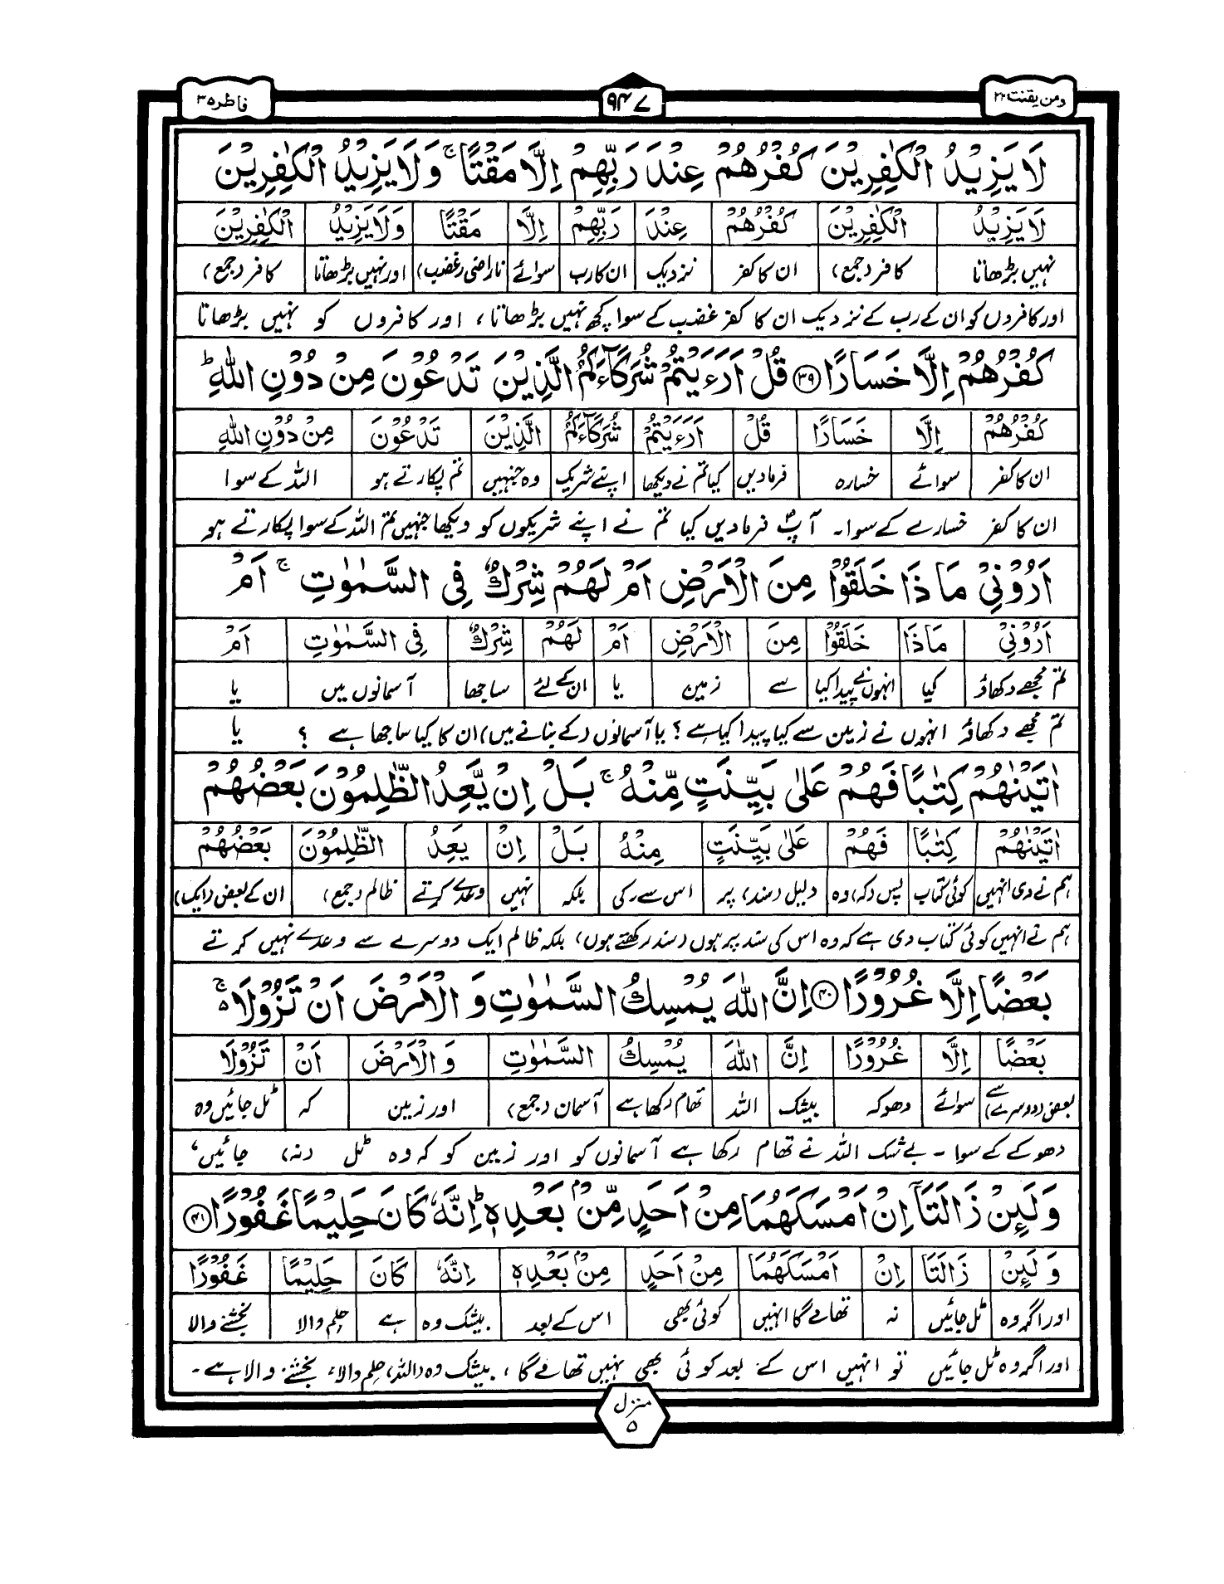 ومن یقنت ۲۲ ۹۴۷ فاطر ۳۵
لَا يَزِيْدُ الْكٰفِرِيْنَ كُفْرُهُمْ عِنْدَ رَبِّهِمْ اِلَّا مَقْتًا ۚ وَلَا يَزِيْدُ الْكٰفِرِيْنَ
لَا يَزِيْدُ الْكٰفِرِيْنَ كُفْرُهُمْ عِنْدَ رَبِّهِمْ اِلَّا مَقْتًا وَلَا يَزِيْدُ الْكٰفِرِيْنَ
نہیں بڑھاتا کافر (جمع) ان کا کفر نزدیک ان کا رب سوائے ناراضی (غضب) اور نہیں بڑھاتا کافر (جمع)
اور کافروں کو ان کے رب کے نزدیک ان کا کفر غضب کے سوا کچھ نہیں بڑھاتا، اور کافروں کو نہیں بڑھاتا
كُفْرُهُمْ اِلَّا خَسَارًا ﴿۳۹﴾ قُلْ اَرَءَيْتُمْ شُرَكَآءَكُمُ الَّذِيْنَ تَدْعُوْنَ مِنْ دُوْنِ اللّٰهِ ؕ
كُفْرُهُمْ اِلَّا خَسَارًا قُلْ اَرَءَيْتُمْ شُرَكَآءَكُمُ الَّذِيْنَ تَدْعُوْنَ مِنْ دُوْنِ اللّٰهِ
ان کا کفر سوائے خسارہ فرمادیں کیا تم نے دیکھا اپنے شریک وہ جنہیں تم پکارتے ہو اللہ کے سوا
ان کا کفر خسارے کے سوا۔ آپؐ فرمادیں کیا تم نے اپنے شریکوں کو دیکھا جنہیں تم اللہ کے سوا پکارتے ہو
اَرُوْنِيْ مَاذَا خَلَقُوْا مِنَ الْاَرْضِ اَمْ لَهُمْ شِرْكٌ فِى السَّمٰوٰتِ ۚ اَمْ
اَرُوْنِيْ مَاذَا خَلَقُوْا مِنَ الْاَرْضِ اَمْ لَهُمْ شِرْكٌ فِى السَّمٰوٰتِ اَمْ
تم مجھے دکھاؤ کیا انہوں نے پیدا کیا سے زمین یا ان کے لئے ساجھا آسمانوں میں یا
تم مجھے دکھاؤ انہوں نے زمین سے کیا پیدا کیا ہے؟ یا آسمانوں (کے بنانے میں) ان کا کیا ساجھا ہے؟ یا
اٰتَيْنٰهُمْ كِتٰبًا فَهُمْ عَلٰى بَيِّنَتٍ مِّنْهُ ۚ بَلْ اِنْ يَّعِدُ الظّٰلِمُوْنَ بَعْضُهُمْ
اٰتَيْنٰهُمْ كِتٰبًا فَهُمْ عَلٰى بَيِّنَتٍ مِنْهُ بَلْ اِنْ يَعِدُ الظّٰلِمُوْنَ بَعْضُهُمْ
ہم نے دی انہیں کوئی کتاب پس (کہ) وہ دلیل (سند) پر اس سے (کی) بلکہ نہیں وعدے کرتے ظالم (جمع) ان کے بعض (ایک)
ہم نے انہیں کوئی کتاب دی ہے کہ وہ اس کی سند پر ہوں (سند رکھتے ہوں) بلکہ ظالم ایک دوسرے سے وعدے نہیں کرتے
بَعْضًا اِلَّا غُرُوْرًا ﴿۴۰﴾ اِنَّ اللّٰهَ يُمْسِكُ السَّمٰوٰتِ وَ الْاَرْضَ اَنْ تَزُوْلَا ۚ۬
بَعْضًا اِلَّا غُرُوْرًا اِنَّ اللّٰهَ يُمْسِكُ السَّمٰوٰتِ وَ الْاَرْضَ اَنْ تَزُوْلَا
بعض (دوسرے) سے سوائے دھوکہ بیشک اللہ تھام رکھا ہے آسمان (جمع) اور زمین کہ ٹل جائیں وہ
دھوکے کے سوا۔ بے شک اللہ نے تھام رکھا ہے آسمانوں کو اور زمین کو کہ وہ ٹل (نہ) جائیں،
وَلَئِنْ زَالَتَآ اِنْ اَمْسَكَهُمَا مِنْ اَحَدٍ مِّنْۢ بَعْدِهٖ ؕ اِنَّهٗ كَانَ حَلِيْمًا غَفُوْرًا ﴿۴۱﴾
وَلَئِنْ زَالَتَا اِنْ اَمْسَكَهُمَا مِنْ اَحَدٍ مِنْۢ بَعْدِهٖ اِنَّهٗ كَانَ حَلِيْمًا غَفُوْرًا
اور اگر وہ ٹل جائیں نہ تھامے گا انہیں کوئی بھی اس کے بعد بیشک وہ ہے حلم والا بخشنے والا
اور اگر وہ ٹل جائیں تو انہیں اس کے بعد کوئی بھی نہیں تھامے گا، بیشک وہ (اللہ) حلم والا، بخشنے والا ہے۔
منزل ۵